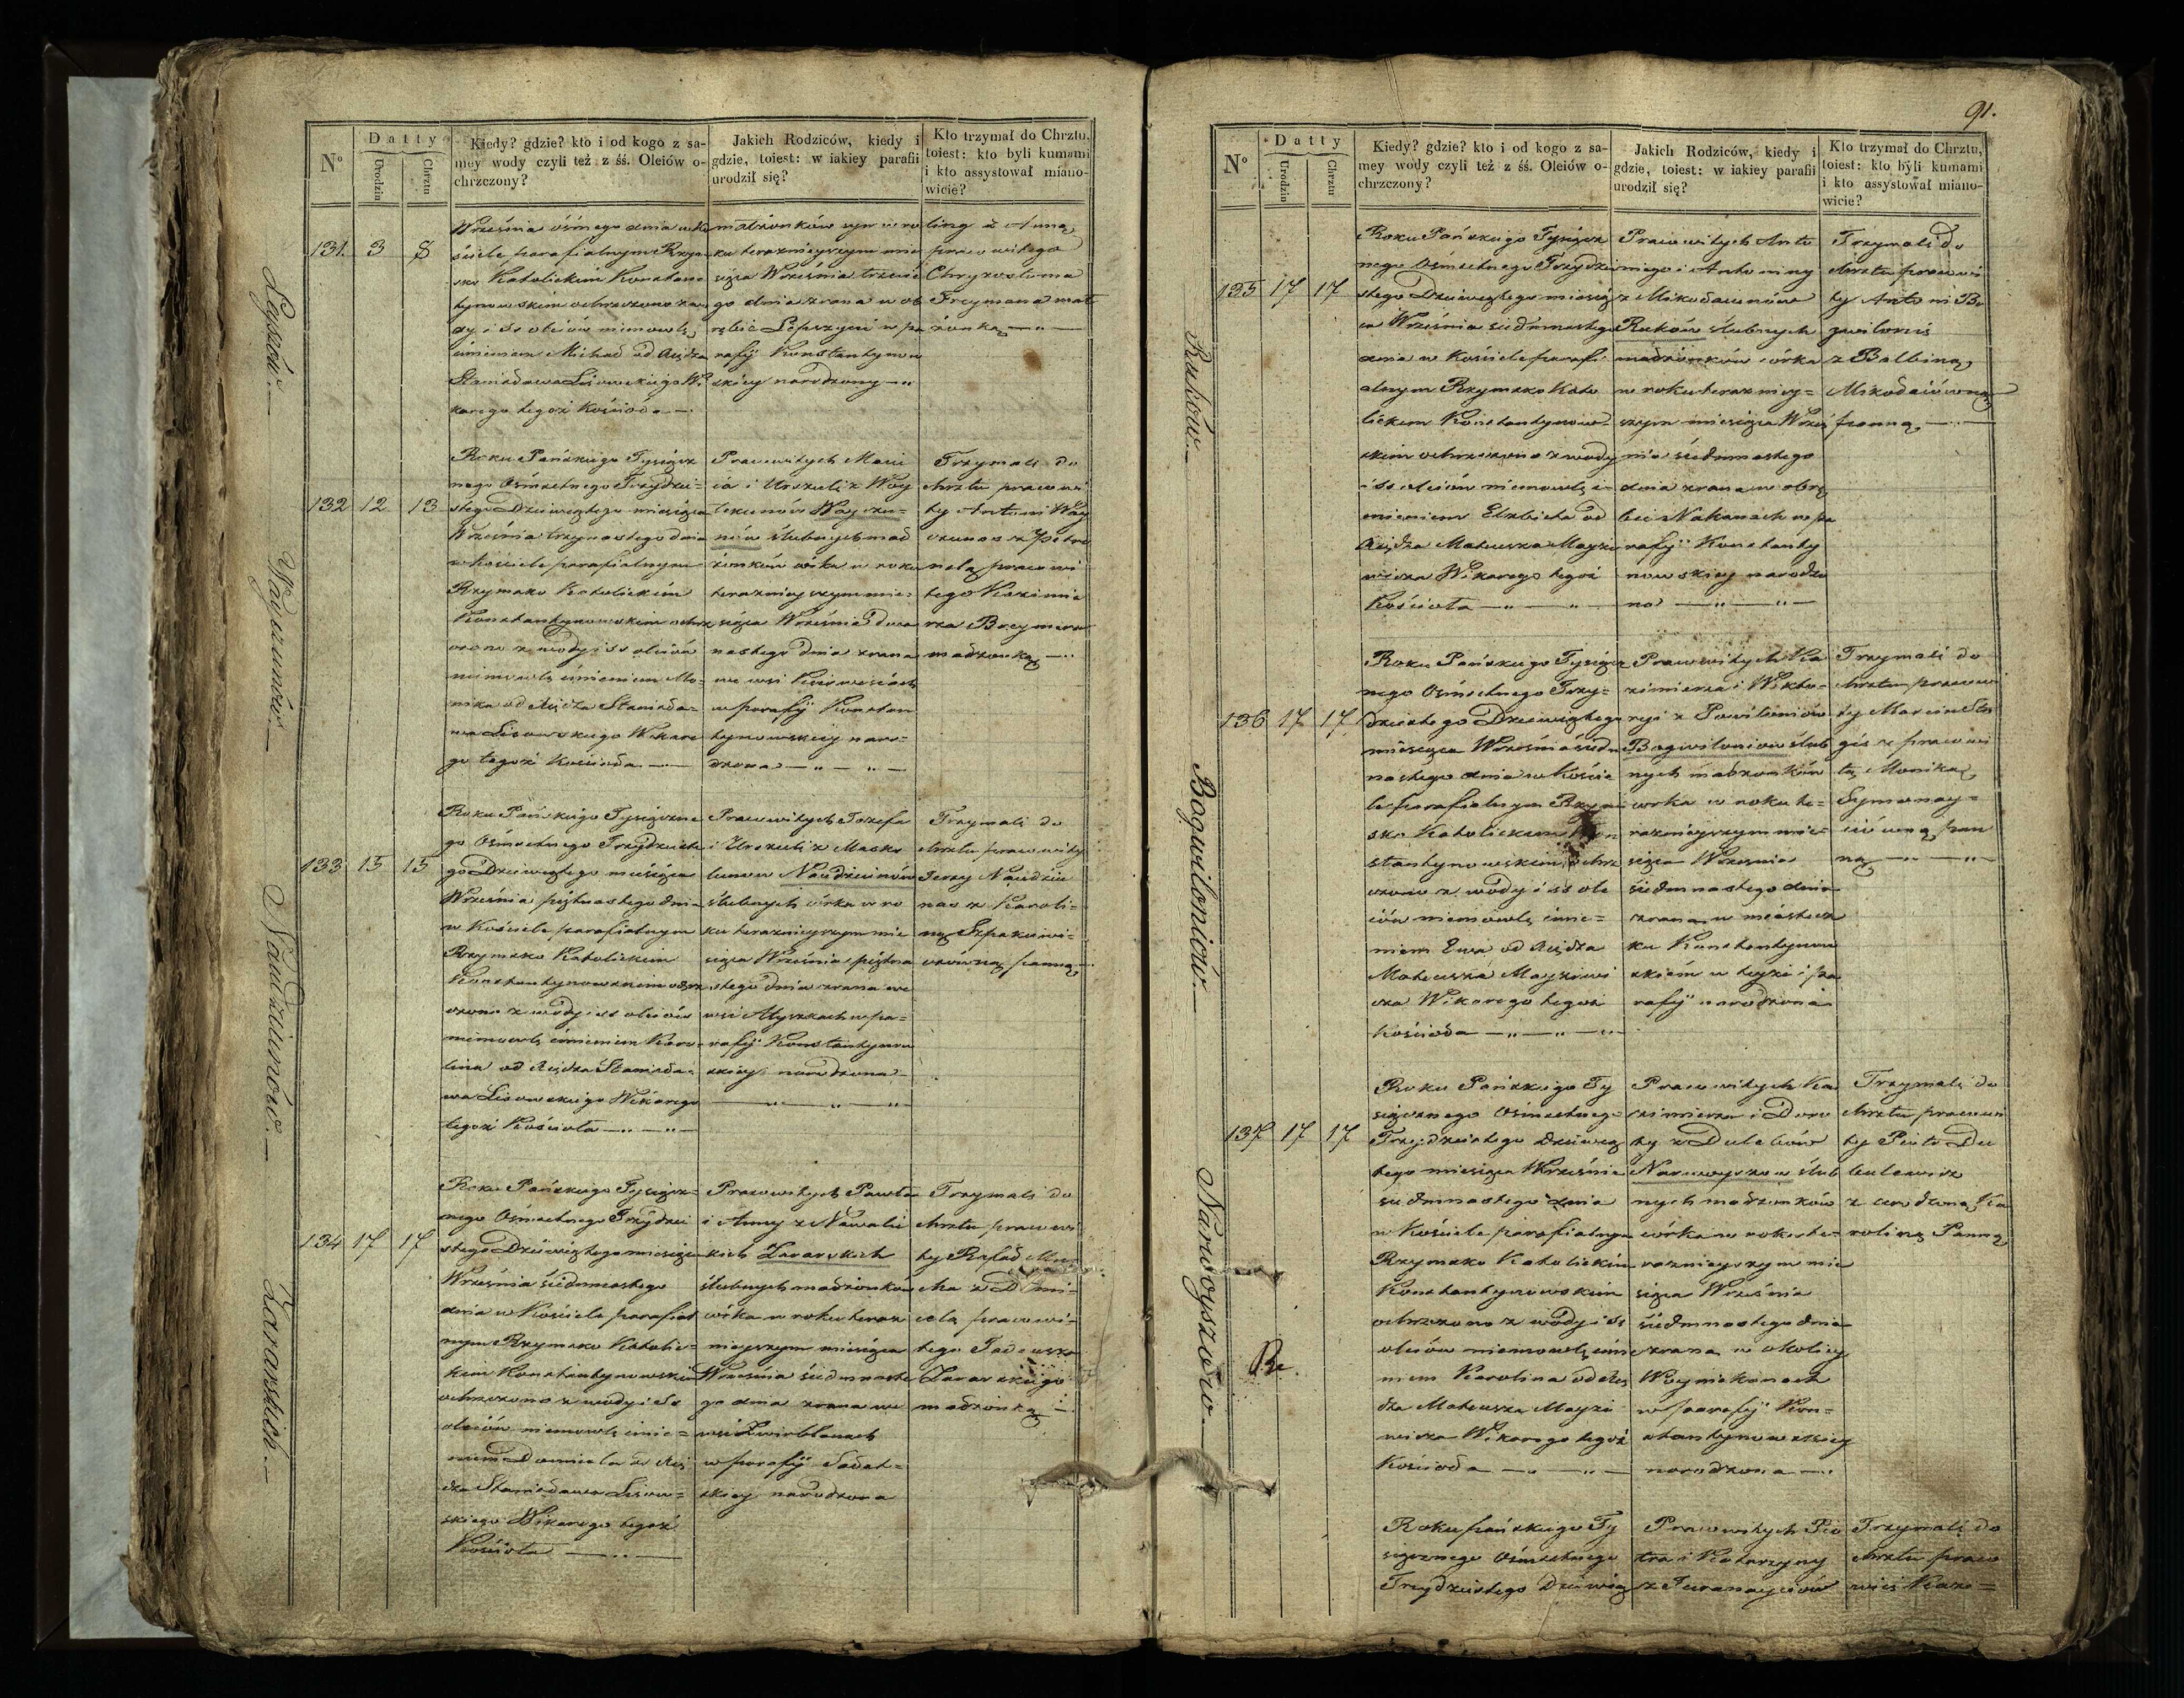 Nº
Datty
Urodzin
Chrztu
Kiedy? gdzie? kto i od kogo z sa-
mey wody czyli też z śś. Oleiów o-
chrzczony?
Jakich Rodziców, kiedy i
gdzie, toiest: w iakiey parafii
urodził się?
Kto trzymał do Chrztu,
toiest: kto byli kumami
i kto assystował miano-
wicie?
131 3 8
Września ósmego dnia w Ko
ściele parafialnym Rzym
sko Katolickim Konstan
tynowskim ochrzczono z wo
dy i SS oleiów niemowlę
imieniem Michał od Xiędza
Stanisława Lisowskiego Wi
karego tegoż Kościoła
małżonków syn w ro
ku teraznieyszym mie
siąca Września trzecie
go dnia zrana w ob
rębie
w pa
rafij Konstantynow
skiey narodzony
Anną
prawowitego
Chryzostoma
małżonką
132 12 13
Roku Pańskiego Tysiącz
nego Ośmsetnego Trzydzie=
stego Dziewiątego miesiąca
Września trzynastego dnia
w Kościele parafialnym
Rzymsko Katolickim
Konstantynowskim ochrz
czono z wody i SS oleiów
niemowlę imieniem Mo=
nika od Xiędza Stanisła=
wa Lisowskiego Wikare
go tegoż Kościoła
Pracowitych Macie
ia i Urszuli z Woy
Wayczu=
nów ślubnych mał
żonków córka w roku
teraznieyszym mie=
siąca Września dwu
nastego dnia zrana
we wsi
w parafij Konstan
tynowskiey naro=
dzona
Trzymali do
chrztu pracowi
ty Antoni Way
czunas z Petro
nelą pracowi
tego Kazimie
rza
małżonką
133 15 15
Roku Pańskiego Tysiączne
go Ośmsetnego Trzydzieste
go Dziewiątego miesiąca
Września piętnastego dnia
w Kościele parafialnym
Rzymsko Katolickim
Konstantynowskim ochrz
czono z wody i SS oleiów
niemowlę imieniem Karo=
lina od Xiędza Stanisła=
wa Lisowskiego Wikarego
tegoż Kościoła
Pracowitych Jozefa
i Urszuli z Masko
lunow Naudziunów
ślubnych córka w ro
ku teraznieyszym mie
siąca Września piętna
stego dnia zrana we
wsi Atyszkach w pa=
rafij Konstantynow
skiey narodzona
Trzymali do
chrztu pracowity
Jerzy Naudziu
nas z Karoli=
ną Szpakowi=
czówną panną
134 17 17
Roku Pańskiego Tysiącz=
nego Ośmsetnego Trzydzie
stego Dziewiątego miesiąca
Września siedmnastego
dnia w Kościele parafial
nym Rzymsko Katolic=
kim Konstantynowskim
ochrzczono z wody i SS
oleiów niemowlę imie=
niem Daniela od Xię
dza Stanisława Lisow=
skiego Wikarego tegoż
Kościoła
Pracowitych Pawła
i Anny z Nawalic
kich Zararskich
ślubnych małżonków
córka w roku teraz
nieyszym miesiąca
Września siedmnaste
go dnia zrana we
wsi
w parafij
skiey narodzona
Trzymali do
chrztu pracowi
ty Rafał
pracowi=
tego Tadeusza
Zararskiego
małżonką
Łapszów.
Wayczunów
Naudziunów.
Zararskich.
91.
Nº
Datty
Urodzin
Chrztu
Kiedy? gdzie? kto i od kogo z sa-
mey wody czyli też z śś. Oleiów o-
chrzczony?
Jakich Rodziców, kiedy i
gdzie, toiest: w iakiey parafii
urodził się?
Kto trzymał do Chrztu,
toiest: kto byli kumami
i kto assystował miano-
wicie?
135 17 17
Roku Pańskiego Tysiącz
nego Ośmsetnego Trzydzie
stego Dziewiątego miesią
ca Września siedmnastego
dnia w Kościele parafi
alnym Rzymsko Kato
lickim Konstantynow
skim ochrzczono z wody
i SS oleiów niemowlę i=
mieniem Elzbieta od
Xiędza Mateusza Mayzie
wicza Wikarego tegoż
Kościoła
Pracowitych Anto
niego i Antoniny
z Mikołaiunów
Ruków ślubnych
małżonków córka
w roku teraz niey=
szym miesiąca Wrześ
nia siedmnastego
dnia zrana w obrę
bie Nakanach w pa
rafij Konstanty
nowskiey narodzo
na
Trzymali do
chrztu pracowi
ty Antoni Bo
gwilonis
z Balbiną
Mikołaiówną
panną
136 17 17
Roku Pańskiego Tysiącz
nego Ośmsetnego Trzy=
dziestego Dziewiątego
miesiąca Września siedm
nastego dnia w Koście
le parafialnym Rzym
sko Katolickim Kon
stantynowskim ochrz
czono z wody i SS ole
iów niemowlę imie=
niem Ewa od Xiędza
Mateusza Mayziewi
cza Wikarego tegoż
Kościoła
Pracowitych Ka
zimierza i Wikto=
ryi z Powilaniów
Bogwiloniow ślub
nych małżonków
córka w roku te=
raznieyszym mie=
siąca Września
siedmnastego dnia
zrana w miastecz
ku Konstantynow
skiem w teyże i pa
rafij narodzona
Trzymali do
chrztu pracowi
ty Marcin
z pracowi
tą Moniką
Szymonay=
ciówną pan
ną
137 17 17
Roku Pańskiego Ty
siącznego Ośmsetnego
Trzydziestego Dziewią
tego miesiąca Września
siedmnastego dnia
w Kościele parafialnym
Rzymsko Katolickim
Konstantynowskim
ochrzczono z wody i SS
oleiów niemowlę imie
niem Karolina od Xię
dza Mateusza Mayzie
wicza Wikarego tegoż
Kościoła
Pracowitych Ka
zimierza i Doro
ty z Dulebów
Narwoyszow ślub
nych małżonków
córka w roku te=
raznieyszym mie
siąca Września
siedmnastego dnia
zrana w okolicy
Woyniekanach
w parafij Kon=
stantynowskiey
narodzona
Trzymali do
chrztu pracowi
ty Piotr Du
lebowicz
z urodzoną Ka
roliną Panną
Roku Pańskiego Ty
siącznego Ośmsetnego
Trzydziestego Dziewią
Pracowitych Pio
tra i Katarzyny
Trzymali do
chrztu praco
Rukow.
Bogwiloniow.
Narwoyszow.